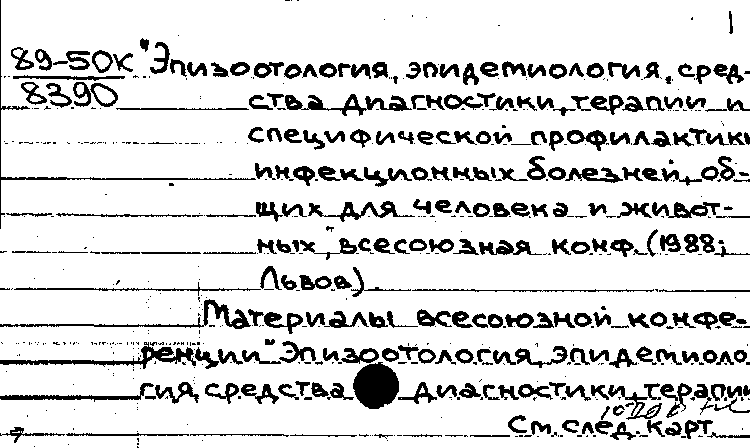 1
89-50К "Эпизоотология, эпидемиология, сред-
8390 ства диагностики, терапии и
специфической профилактики
инфекционных болезней, об-
щих для человека и живот-
ных", всесоюзная конф. (1988;
Львов).
Материалы всесоюзной конфе-
ренции "Эпизоотология, эпидемиоло
гия, средства диагностики, терапии
См. след. карт.